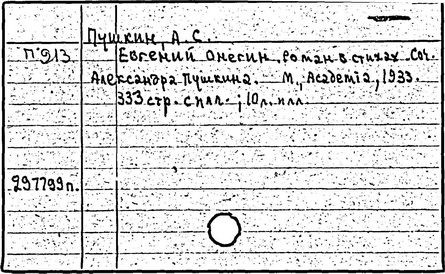 Пушкин, А. С.
П 913 Евгений Онегин. роман в стихах. Соч.
Александра Пушкина. М., Academia, 1933.
333 стр. с илл.; 10 л. илл.
297799 п.